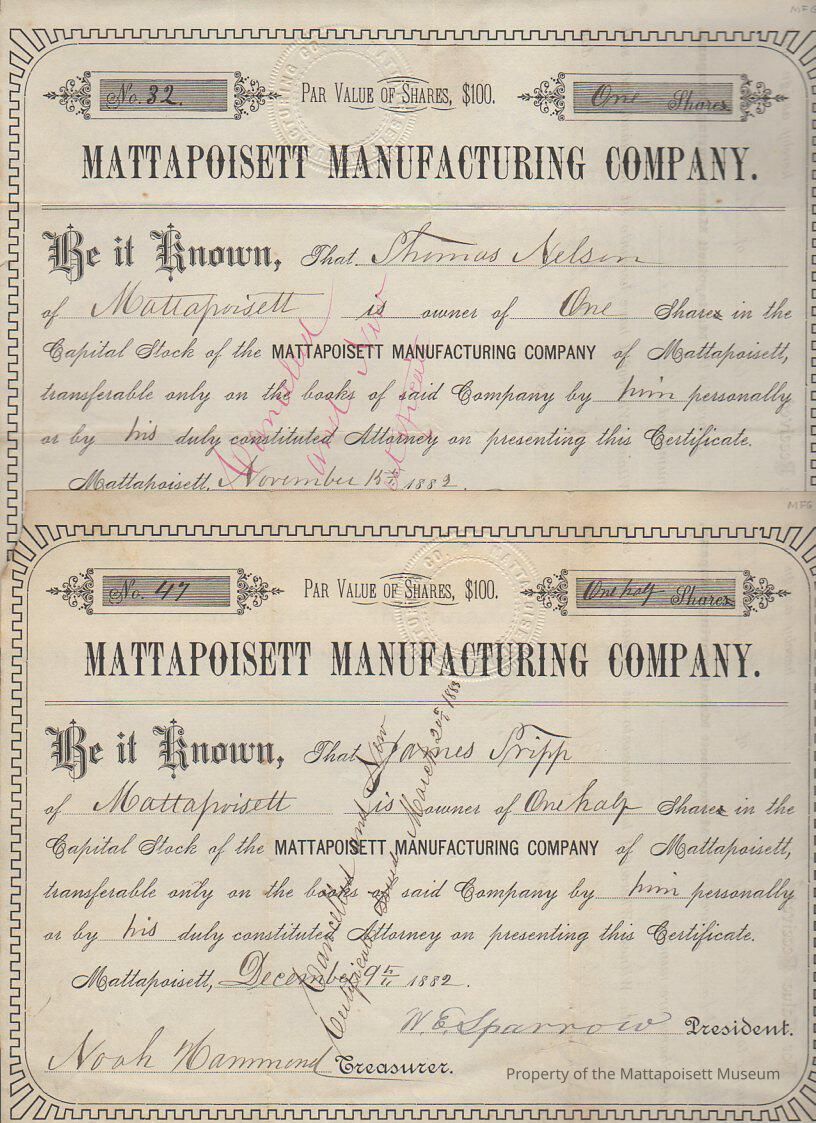 MFG
No. 32. PAR VALUE OF SHARES, $100. One Shares
MATTAPOISETT MANUFACTURING COMPANY.
Be it Known, That Thomas Nelson
of Mattapoisett is owner of One Shares in the
Capital Stock of the MATTAPOISETT MANUFACTURING COMPANY of Mattapoisett,
transferable only on the books of said Company by him personally
or by his duly constituted Attorney on presenting this Certificate.
Mattapoisett, November 15th 1882.
Cancelled
and New
MFG
No. 47 PAR VALUE OF SHARES, $100. One half Shares
MATTAPOISETT MANUFACTURING COMPANY.
Be it Known, That James Tripp
of Mattapoisett is owner of One half Shares in the
Capital Stock of the MATTAPOISETT MANUFACTURING COMPANY of Mattapoisett,
transferable only on the books of said Company by him personally
or by his duly constituted Attorney on presenting this Certificate.
Mattapoisett, December 9th 1882.
Cancelled and New
Certificate Issued March 20th 1883
W. E. Sparrow President.
Noah Hammond Treasurer.
Property of the Mattapoisett Museum